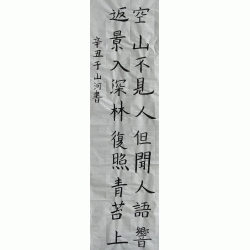 空山不見人但聞人語響
返景入深林復照青苔上
辛丑于山河書